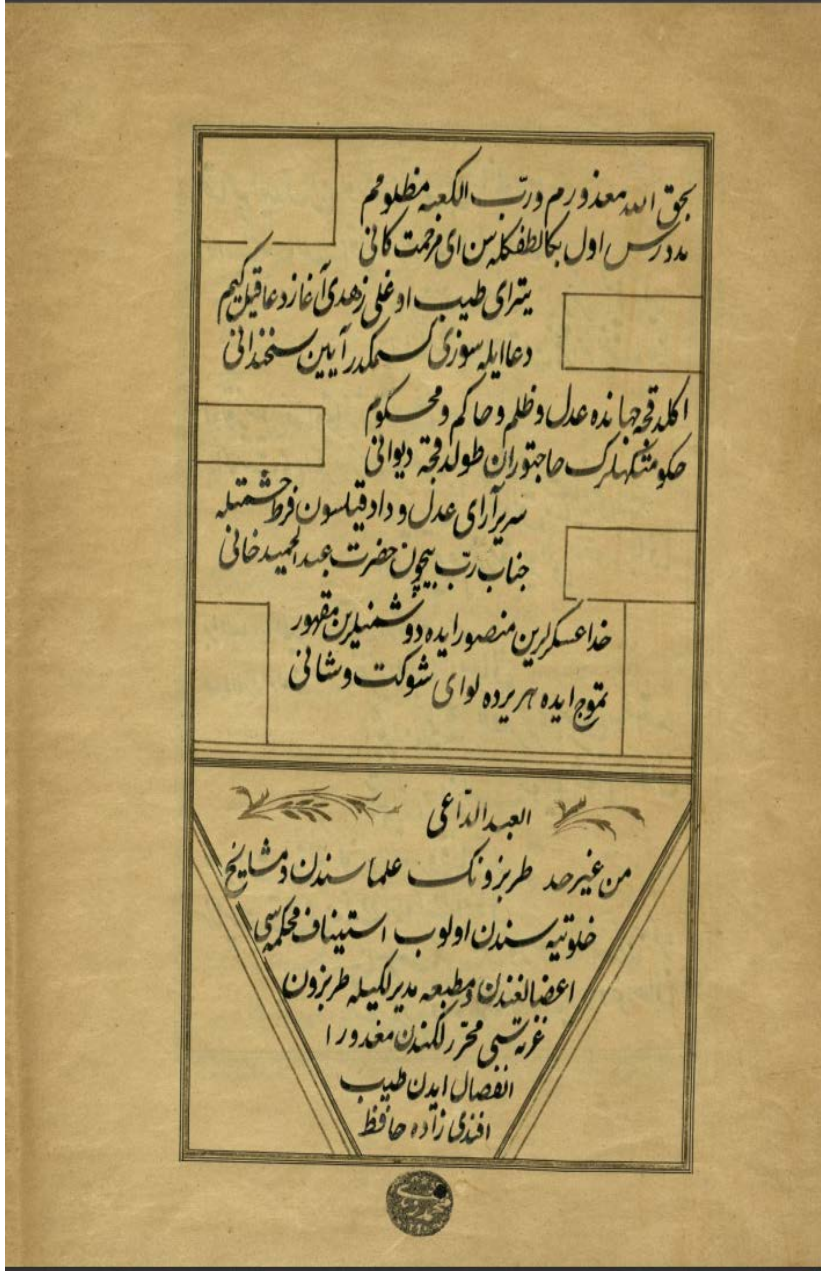 بحق الله معذورم ورب الكعبه مظلومم
مددرس اول بكا لطفكله سن اى مرحمت كانى
يتر اى طيب اوغلى زهدى آغاز دعا قيل كيم
دعا ايله سوزى كسمكدر آيين سخندانى
اكلدقجه جهانده عدل و ظلم و حاكم و محكوم
حاجتوران طولدقجه ديوانى
سرير آراى عدل و داد قيلسون فرط حشمتله
جناب رب بيچون حضرت عبد الحميد خانى
خدا عسكرلرين منصور ايده دوشمنلرين مقهور
تموج ايده هر يرده لواى شوكت و شانى
العبد الداعى
من غير حد طربزونك علماسندن و مشايخ
خلوتيه سندن اولوب استيناف محكمه سى
اعضالغندن و مطبعه مديرلكيله طربزون
غزته سى محررلكندن مغدورا
انفصال ايدن طيب
افندى زاده حافظ
محمد زهدى